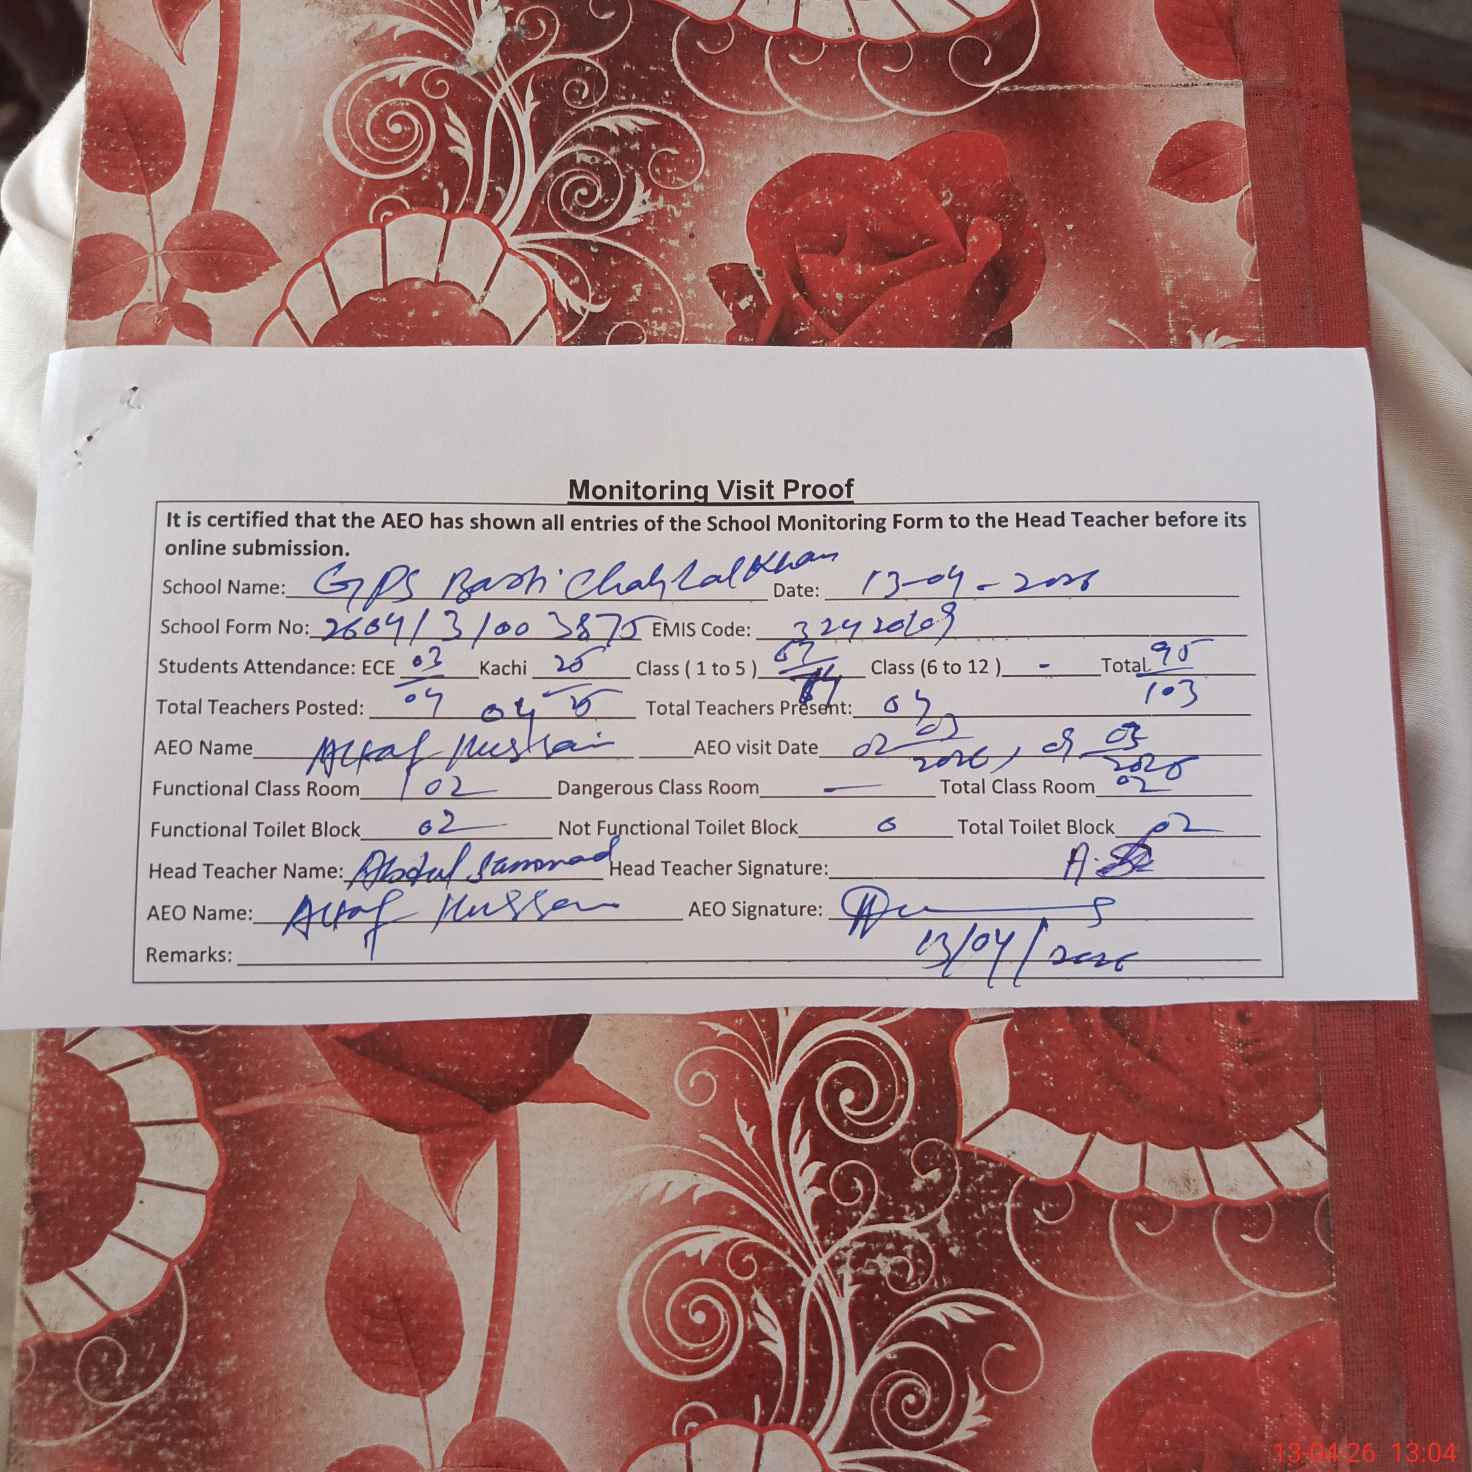 Monitoring Visit Proof
It is certified that the AEO has shown all entries of the School Monitoring Form to the Head Teacher before its
online submission.
School Name: GPS Basti Chah Lal Khan Date: 13-04-2026
School Form No: 2604/3/003875 EMIS Code: 32420109
Students Attendance: ECE 03/04 Kachi 25/25 Class ( 1 to 5 ) 67/74 Class (6 to 12 ) - Total 95/103
Total Teachers Posted: 04 Total Teachers Present: 04
AEO Name Altaf Hussain AEO visit Date 02 03/2026, 09 03/2026
Functional Class Room 02 Dangerous Class Room — Total Class Room 02
Functional Toilet Block 02 Not Functional Toilet Block 0 Total Toilet Block 02
Head Teacher Name: Abdul Sammad Head Teacher Signature:
AEO Name: Altaf Hussain AEO Signature:
13/04/2026
Remarks:
13-04-26 13:04